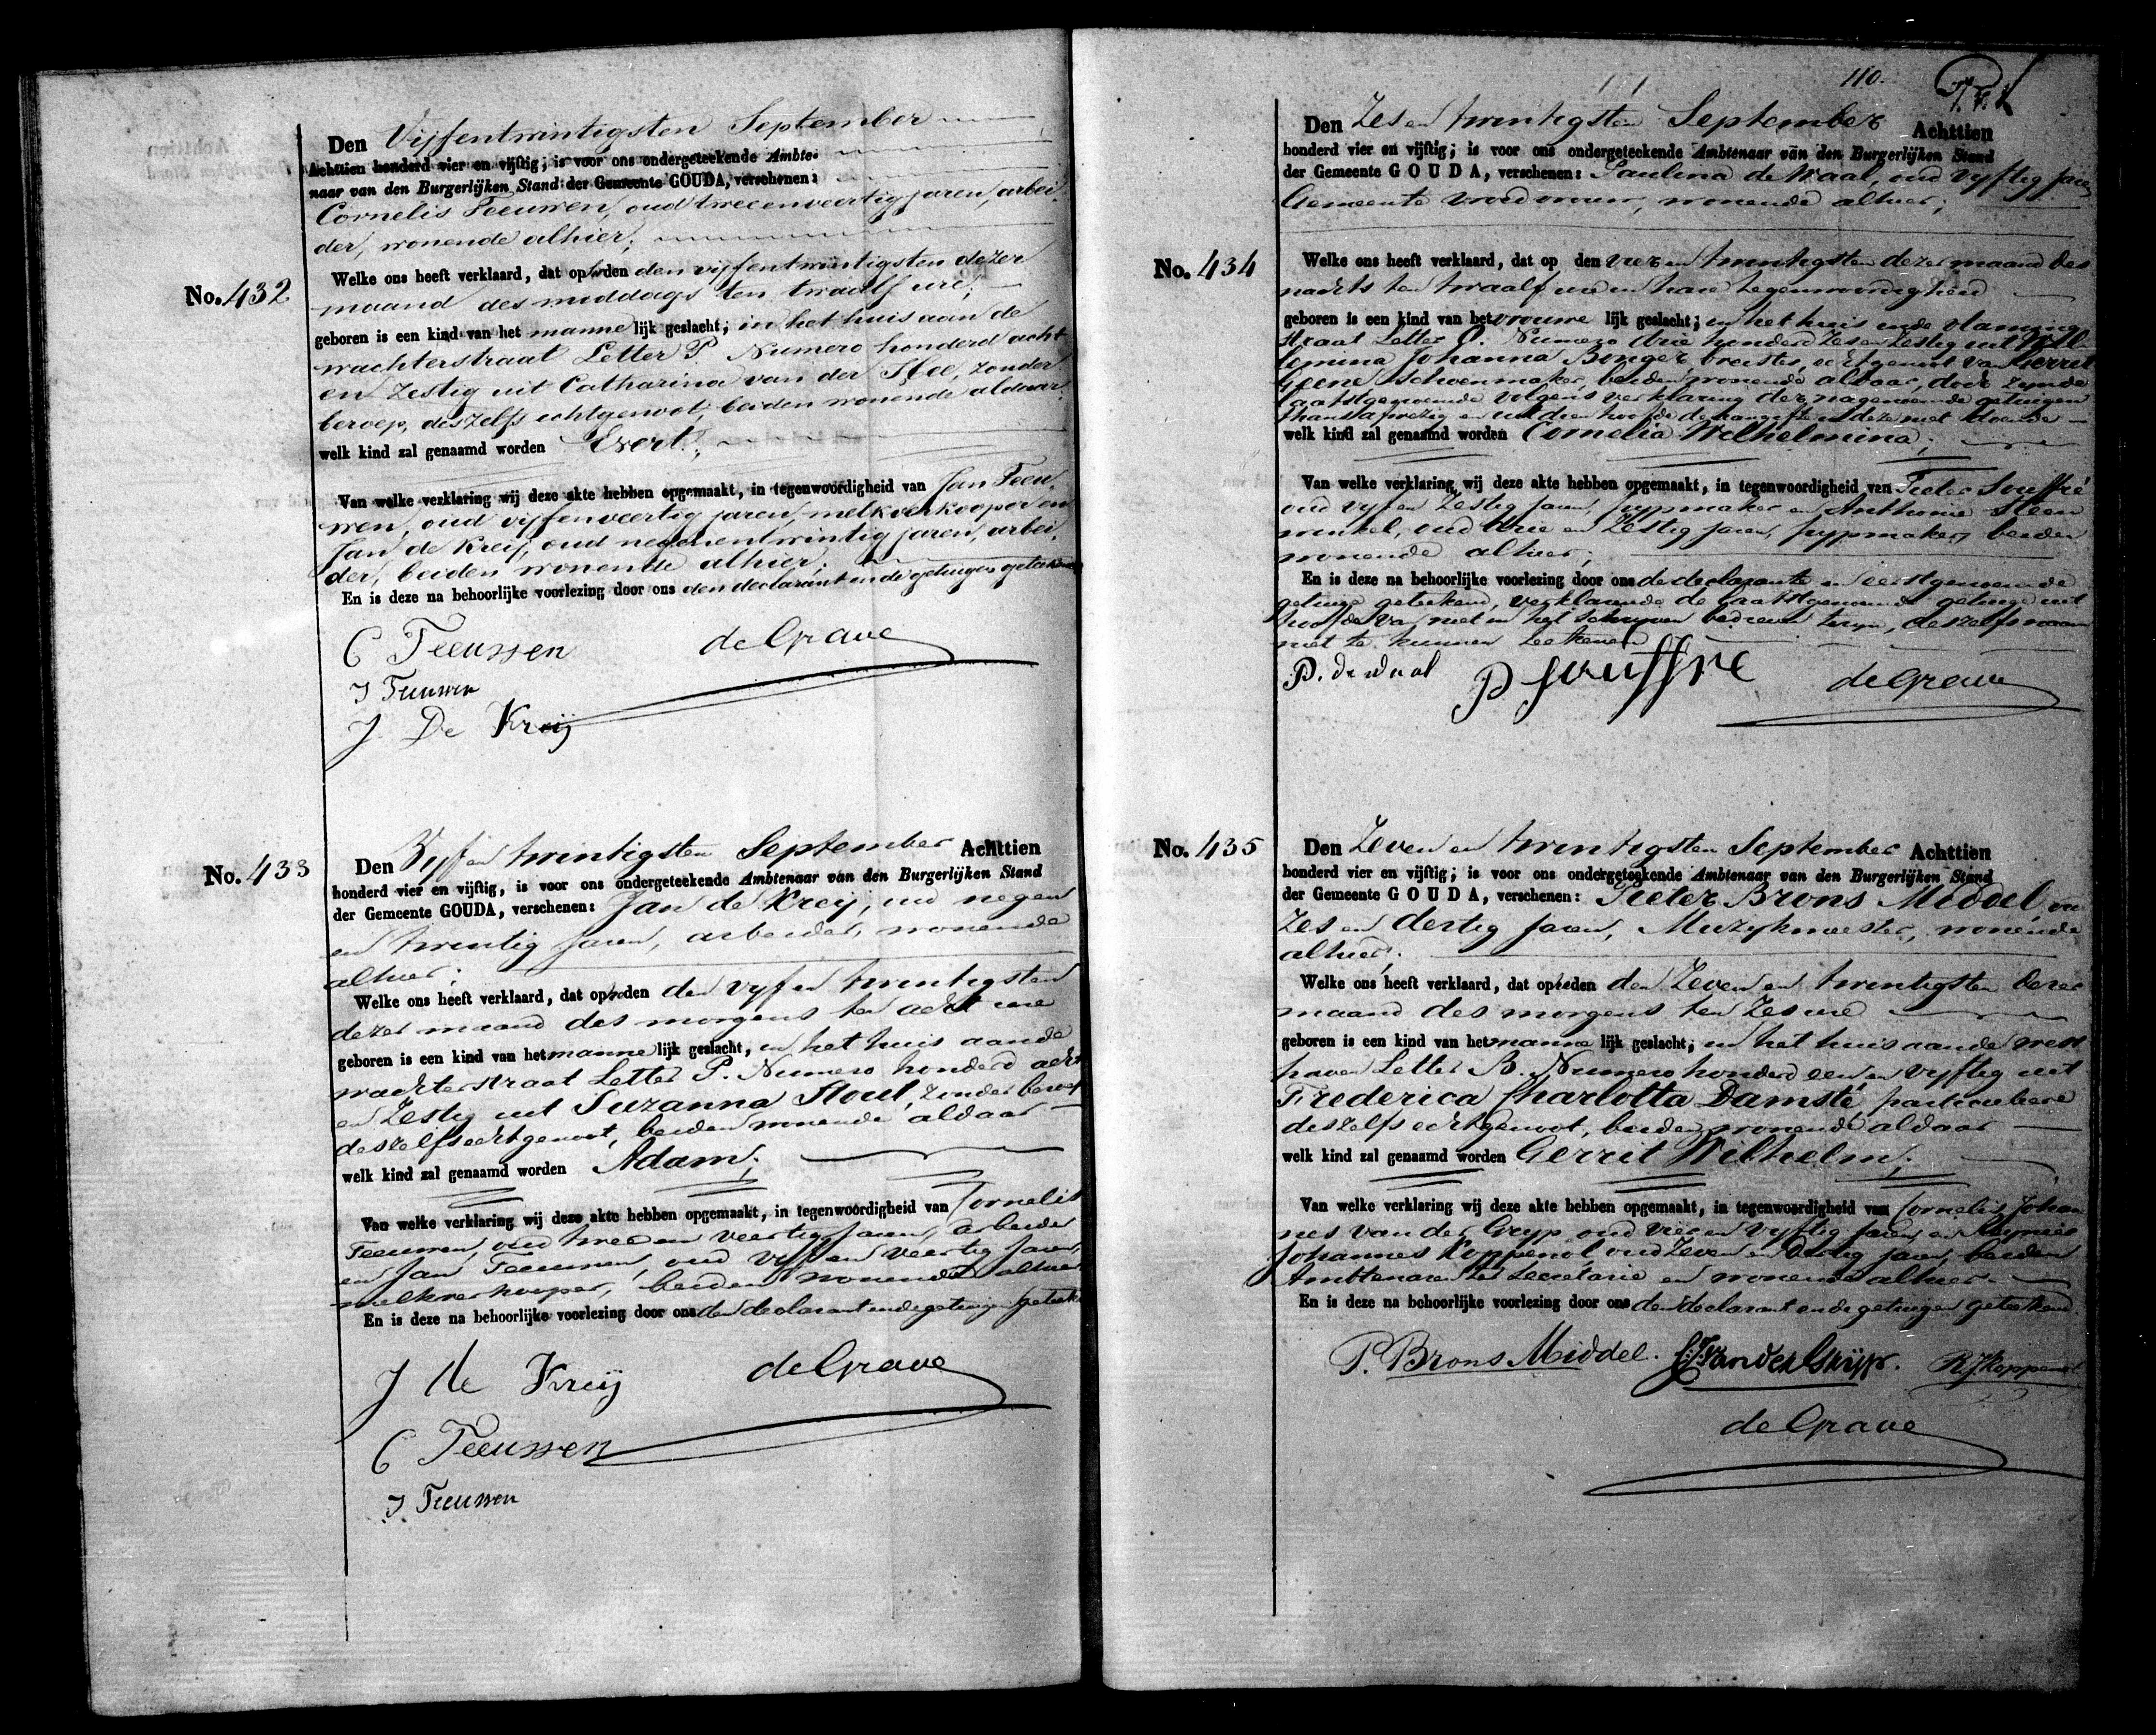 Den Vijfentwintigsten September
Achttien honderd vier en vijftig; is voor ons ondergeteekende Ambte-
naar van den Burgerlijken Stand der Gemeente GOUDA, verschenen:
Cornelis Teeuwen, oud tweeenveertig jaren, arbei-
der, wonende alhier;
No. 432
Welke ons heeft verklaard, dat op heden den vijfentwintigsten dezer
maand des middags ten twaalf ure;
geboren is een kind van het mannelijk geslacht; in het huis aan de
wachterstraat Letter P. Numero honderd acht
en Zestig uit Catharina van der Slee, zonder
beroep, deszelfs echtgenoot, beiden wonende aldaar
welk kind zal genaamd worden Evert;
Van welke verklaring wij deze akte hebben opgemaakt, in tegenwoordigheid van Jan Teeu-
wen, oud vijfenveertig jaren, melkverkooper en
Jan de Kreij, oud negenentwintig jaren, arbei-
der, beiden wonende alhier;
En is deze na behoorlijke voorlezing door ons den declarant en de getuigen geteekend
C Teeussen de Grave
J Teeuwen
J. De Kreij
No. 433
Den Vyf en twintigsten September Achttien
honderd vier en vijftig, is voor ons ondergeteekende Ambtenaar van den Burgerlijken Stand
der Gemeente GOUDA, verschenen: Jan de Kreij, oud negen
en twintig Jaren, arbeider, wonende
alhier;
Welke ons heeft verklaard, dat op heden den vyf en twintigsten
dezer maand des morgens ten acht ure
geboren is een kind van het mannelijk geslacht, in het huis aan de
wachterstraat Letter P. Numero honderd acht
en Zestig uit Suzanna Stout, zonder beroep
deszelfs echtgenoot, beiden wonende aldaar
welk kind zal genaamd worden Adam;
Van welke verklaring wij deze akte hebben opgemaakt, in tegenwoordigheid van Cornelis
Teeuwen, oud twee en veertig Jaren, arbeider
en Jan Teeuwen, oud vyf en veertig Jaren,
melkverkooper, beiden wonende alhier
En is deze na behoorlijke voorlezing door ons den declarant en de getuigen geteekend
J de Kreij de Grave
C Teeussen
J. Teeuwen
110.
Den Zes en twintigsten September Achttien
honderd vier en vijftig; is voor ons ondergeteekende Ambtenaar van den Burgerlijken Stand
der Gemeente GOUDA, verschenen: Paulina de Waal, oud vyftig Jaren
Gemeente Vroedvrouw, wonende alhier;
No. 434
Welke ons heeft verklaard, dat op den vier en twintigsten dezer maand des
nachts ten twaalf ure in hare tegenwoordigheid
geboren is een kind van het vrouwelijk geslacht; in het huis in de vlaming
straat Letter O. Numero drie honderd Zes en Zestig uit Wil-
lemina Johanna Bonger, breister, echtgenoot van Gerrit
Geene, schoenmaker, beiden wonende aldaar, doch zynde
laatstgenoemde volgens verklaring der nagenoemde getuigen
thans afwezig en uit dien hoofde de aangifte in deze niet doende
welk kind zal genaamd worden Cornelia Wilhelmina;
Van welke verklaring wij deze akte hebben opgemaakt, in tegenwoordigheid van Pieter Souffré
oud vyf en Zestig Jaren, pypmaker en Anthonie Steen
winkel, oud drie en Zestig Jaren, pypmaker, beiden
wonende alhier;
En is deze na behoorlijke voorlezing door ons de declarante en eerstgenoemde
getuige geteekend, verklarende de laatstgenoemde getuige uit
hoofde van niet in het schryven bedreven te zyn, deszelfs naam
niet te kunnen teekenen
P. de Waal P Souffre de Grave
No. 435
Den Zeven en twintigsten September Achttien
honderd vier en vijftig; is voor ons ondergeteekende Ambtenaar van den Burgerlijken Stand
der Gemeente GOUDA, verschenen: Pieter Brons Middel, oud
Zes en dertig Jaren, Muzykmeester, wonende
alhier;
Welke ons heeft verklaard, dat op heden den Zeven en twintigsten dezer
maand des morgens ten Zes ure
geboren is een kind van het mannelijk geslacht; in het huis aan de west
haven Letter B. Numero honderd een en vyftig uit
Frederica Charlotta Damsté, particuliere
deszelfs echtgenoot, beiden wonende aldaar
welk kind zal genaamd worden Gerrit Wilhelm;
Van welke verklaring wij deze akte hebben opgemaakt, in tegenwoordigheid van Cornelis Johan
nes van der Gryp, oud vier en vyftig Jaren, en
Johannes Koppenol, oud Zeven en dertig Jaren, beiden
Ambtenaren ter Secretarie en wonende alhier.
En is deze na behoorlijke voorlezing door ons den declarant en de getuigen geteekend.
P. Brons Middel. C.J. van der Gryp. R J Koppenol
de Grave